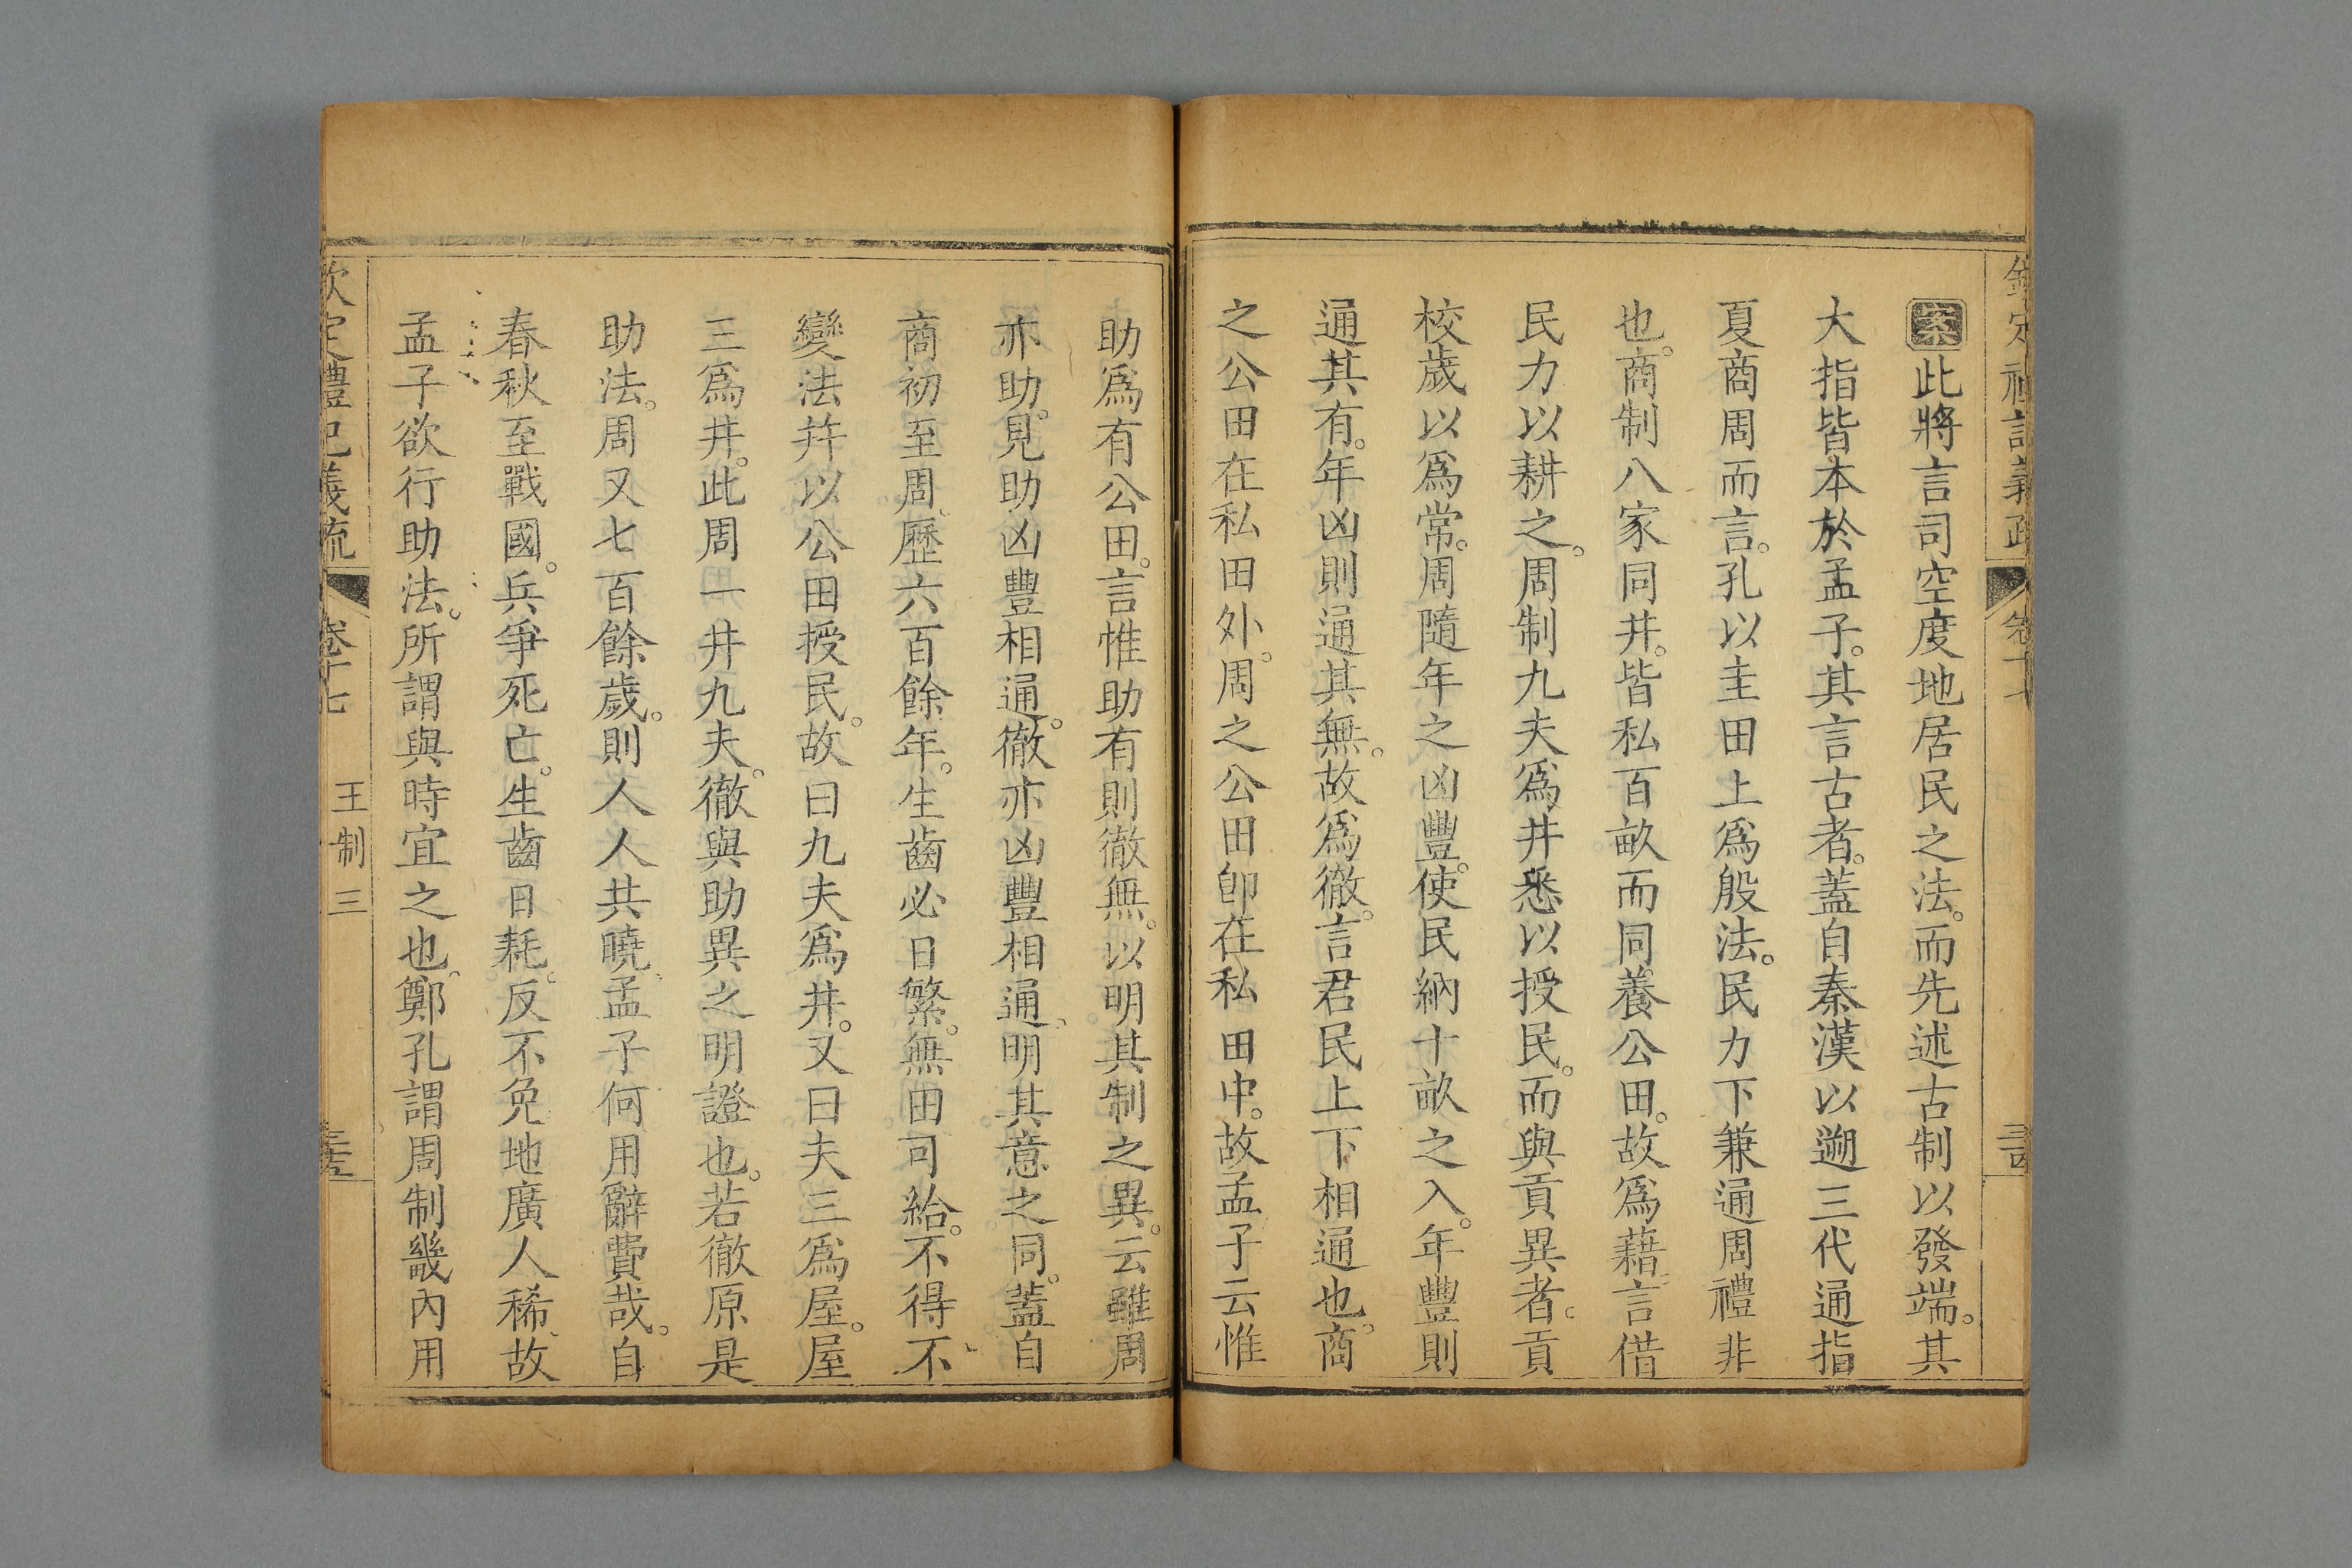 欽定禮記義疏 卷十七 三十四
案此將言司空度地居民之法。而先述古制以發端。其
大指皆本於孟子。其言古者。蓋自秦漢以遡三代通指
夏商周而言。孔以圭田上爲殷法。民力下兼通周禮非
也。商制八家同井。皆私百畝而同養公田。故爲藉。言借
民力以耕之。周制九夫爲井悉以授民。而與貢異者。貢
校歲以爲常。周隨年之凶豐。使民納十畝之入。年豐則
通其有。年凶則通其無。故爲徹。言君民上下相通也。商
之公田在私田外。周之公田卽在私田中。故孟子云惟
助爲有公田。言惟助有則徹無。以明其制之異。云雖周
亦助。見助凶豐相通。徹亦凶豐相通。明其意之同。蓋自
商初至周。歷六百餘年。生齒必日繁。無田可給。不得不
變法幷以公田授民。故曰九夫爲井。又曰夫三爲屋。屋
三爲井。此周一井九夫。徹與助異之明證也。若徹原是
助法。周又七百餘歲。則人人共曉。孟子何用辭費哉。自
春秋至戰國。兵爭死亡。生齒日耗。反不免地廣人稀。故
孟子欲行助法。所謂與時宜之也。鄭孔謂周制畿內用
欽定禮記義疏 卷十七 王制三 三十五